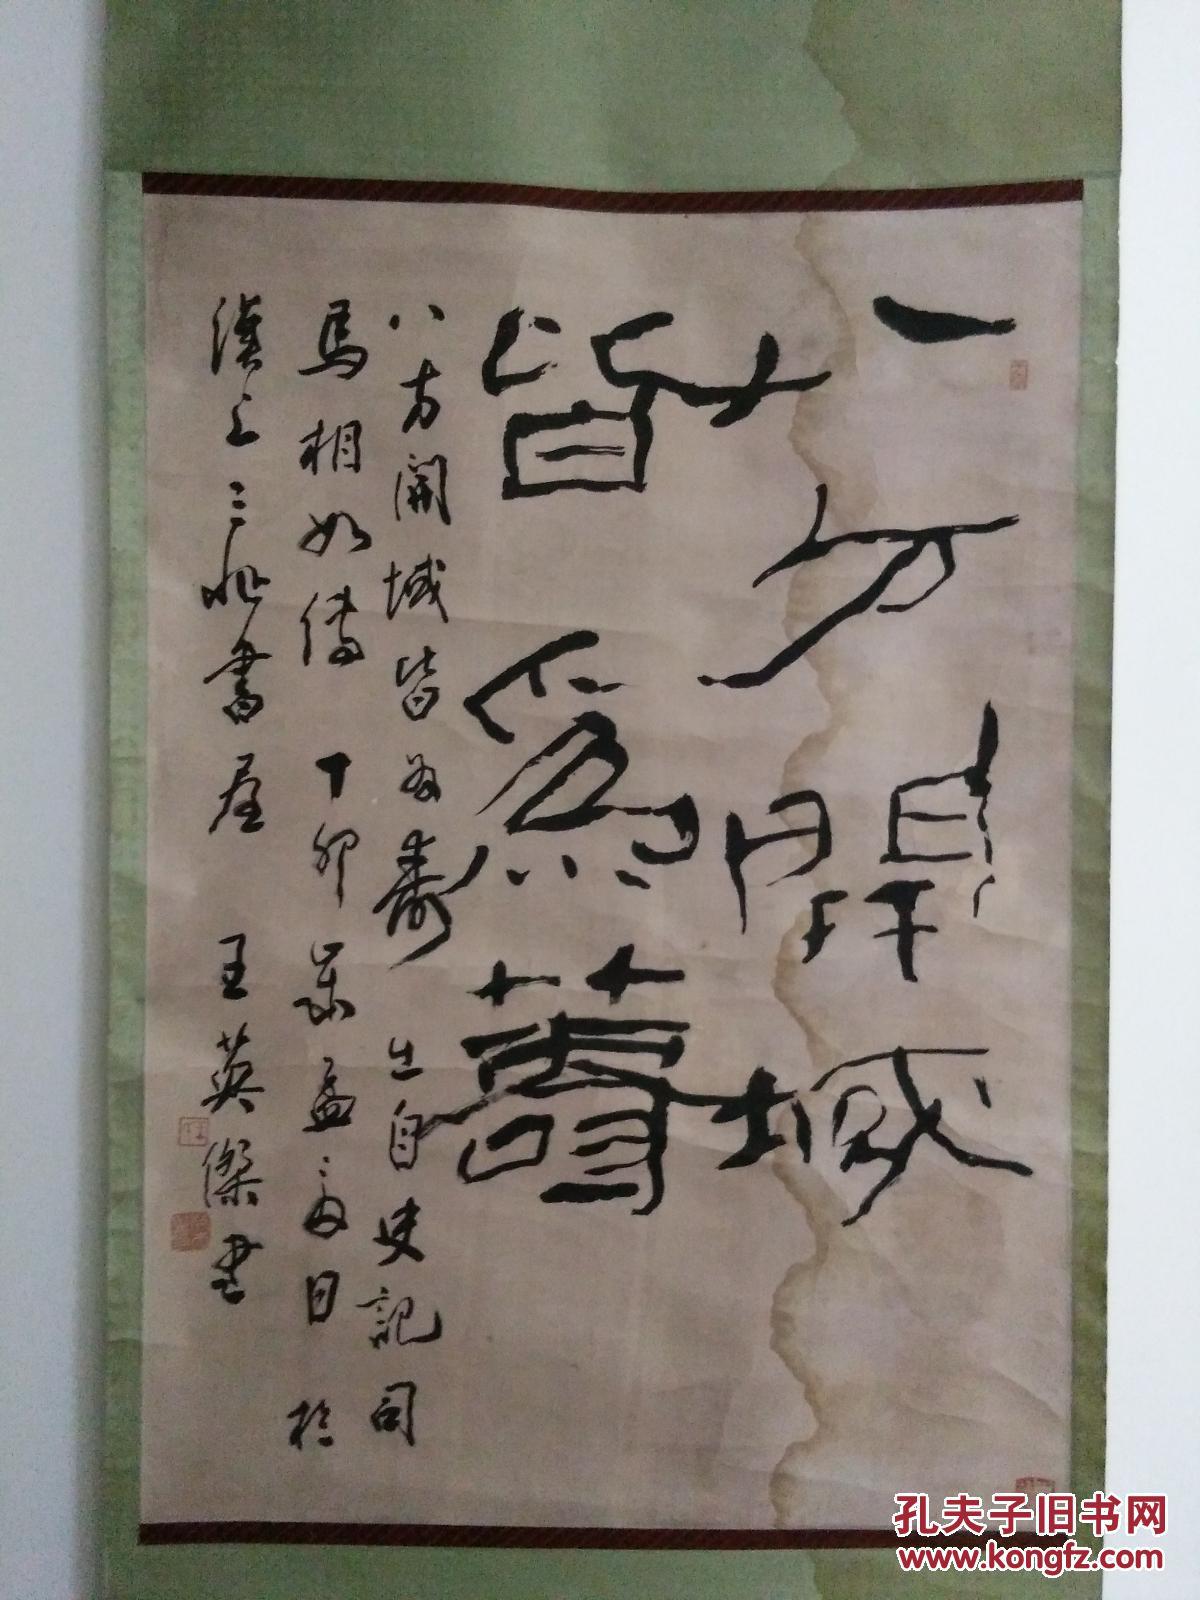 八方開域
皆為壽
八方開域皆為壽 出自史記司
馬相如傳 丁卯歲孟之日於
漢上三非書屋 王英傑書
孔夫子旧书网
www.kongfz.com